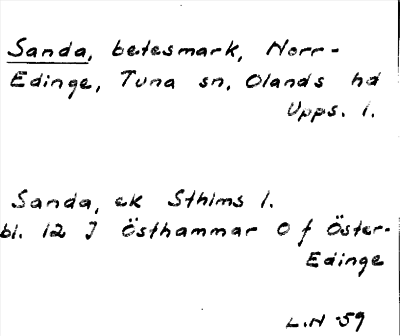 Sanda, betesmark, Norr-
Edinge, Tuna sn, Olands hd
Upps. l.
Sanda, ek Sthlms l.
bl. 12 J Östhammar O f Öster-
Edinge
L.N -59